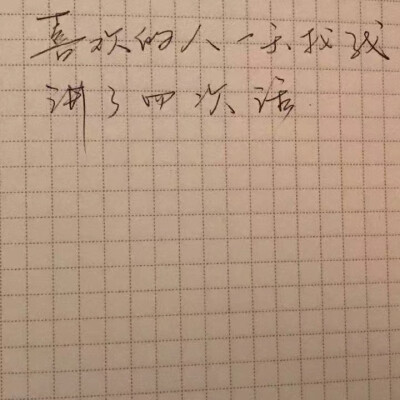 喜欢的人一天找我
讲了四次话